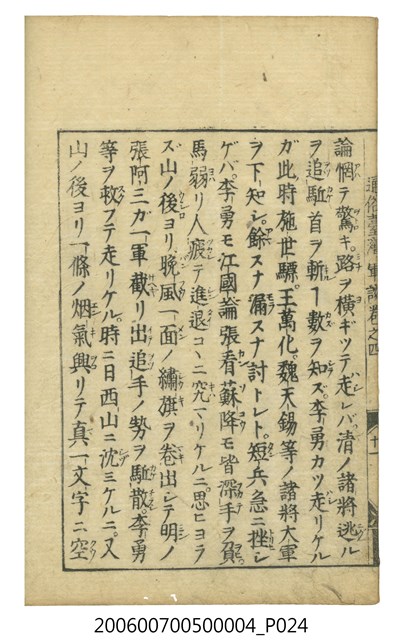 論惘テ驚キ。路ヲ横ギツテ走レバ清ノ諸將逃ル
ヲ追駈首ヲ斬ヿ數ヲ知ズ。李勇カツ走リケル
ガ此時施世驃。王萬化。魏天錫等ノ諸將大軍
ヲ下知シ。餘スナ漏スナ討トレト。短兵急ニ挫シ
ゲバ。李勇モ江國論張看蘇降モ皆深手ヲ負
馬弱リ人疲テ進退コヽニ究マリケルニ思ヒヨラ
ズ山ノ後ヨリ。晩風一面ノ繡旗ヲ卷出シテ明ノ
張阿三ガ一軍截リ出追手ノ勢ヲ駈散。李勇
等ヲ救フテ走リケル。時ニ日西山ニ沈ミケルニ。又
山ノ後ヨリ。一條ノ烟氣興リテ真一文字ニ空
200600700500004_P024